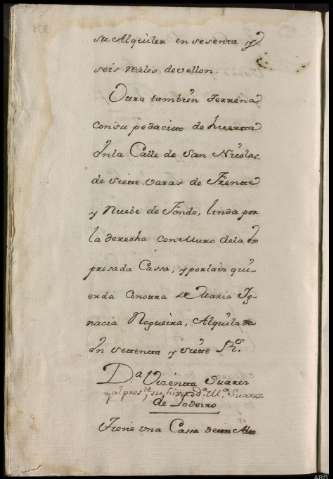 su Alquiler en sesenta y
seis reales de vellon.
Otra tambien Terrena
con su pedacito de huerta
En la Calle de San Nicolas
de siete varas de Frente
y Nuebe de Fondo, linda por
la derecha con Muro de la ex
presada Cassa, y por la iz qui-
erda con otra de Maria Yg-
nacia Nogueira, Alquilada
En setenta y siete Rs.
Da Vicenta Suarez
y al pres.te su hijo
de Lodeiro
Tiene una Cassa de un Alto